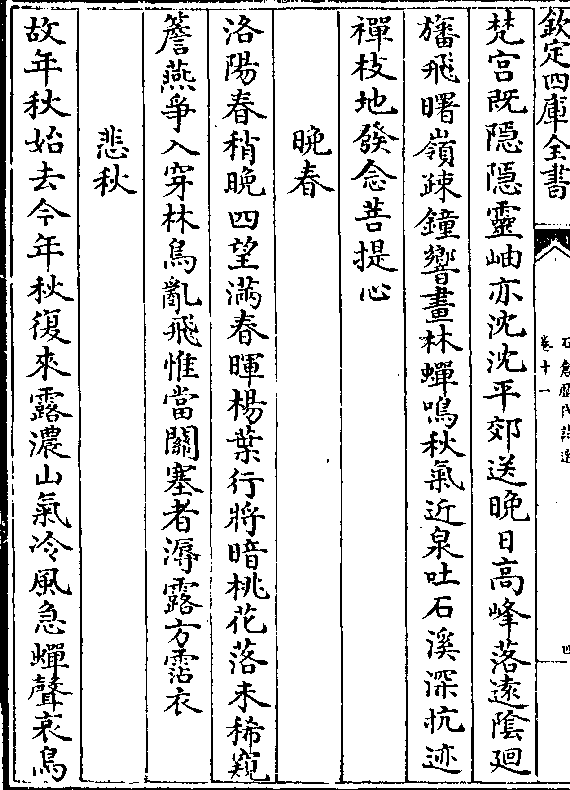 欽定四庫全書
石倉歷代詩選
卷十一
四
楚宫既隱隱靈岫亦沈沈平郊送晚日高峰落遠陰廻
旛飛曙嶺疎鐘響晝林蟬鳴秋氣近泉吐石溪深抗迹
禪枝地發念菩提心
晚春
洛陽春稍晚四望滿春暉楊葉行將暗桃花落未稀窺
簷燕爭入穿林鳥亂飛惟當關塞者溽露方霑衣
悲秋
故年秋始去今年秋復來露濃山氣冷風急蟬聲哀鳥